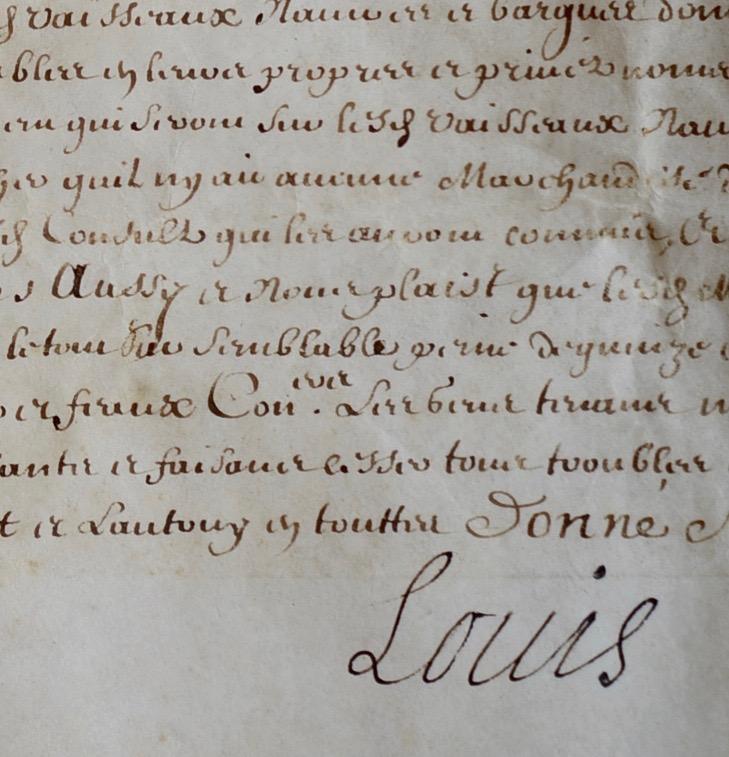 vaisseaux Navires et barques don
bles en leurs propres et privez noms
qui seront sur lesd vaisseaux Nav
quil ny ait aucune Marchandise d
Consulz qui les auront commis, Et
s Aussy et Nous plaist que lesd M
le tout sur semblable peine de quinze c
et feaux Con.ers Les gens tenans n
et faisans cesser tous troubles
t et Lautony en touttes Donné
Louis